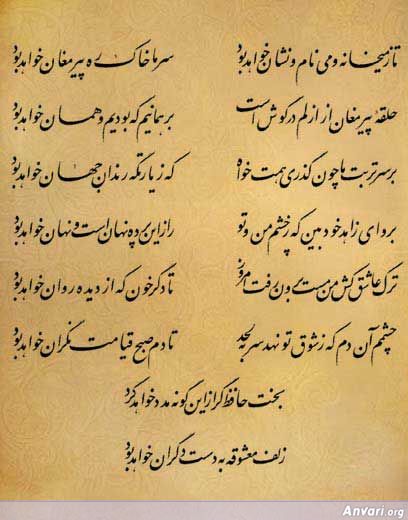 تا ز میخانه و می نام و نشان خواهد بود سر ما خاک ره پیر مغان خواهد بود
حلقهٔ پیر مغان از ازلم در گوش است بر همانیم که بودیم و همان خواهد بود
بر سر تربت ما چون گذری همت خواه که زیارتگه رندان جهان خواهد بود
برو ای زاهد خودبین که ز چشم من و تو راز این پرده نهان است و نهان خواهد بود
ترک عاشق کش من مست برون رفت امروز تا دگر خون که از دیده روان خواهد بود
چشمم آن دم که ز شوق تو نهد سر به لحد تا دم صبح قیامت نگران خواهد بود
بخت حافظ گر ازین گونه مدد خواهد کرد
زلف معشوقه به دست دگران خواهد بود
Anvari.org